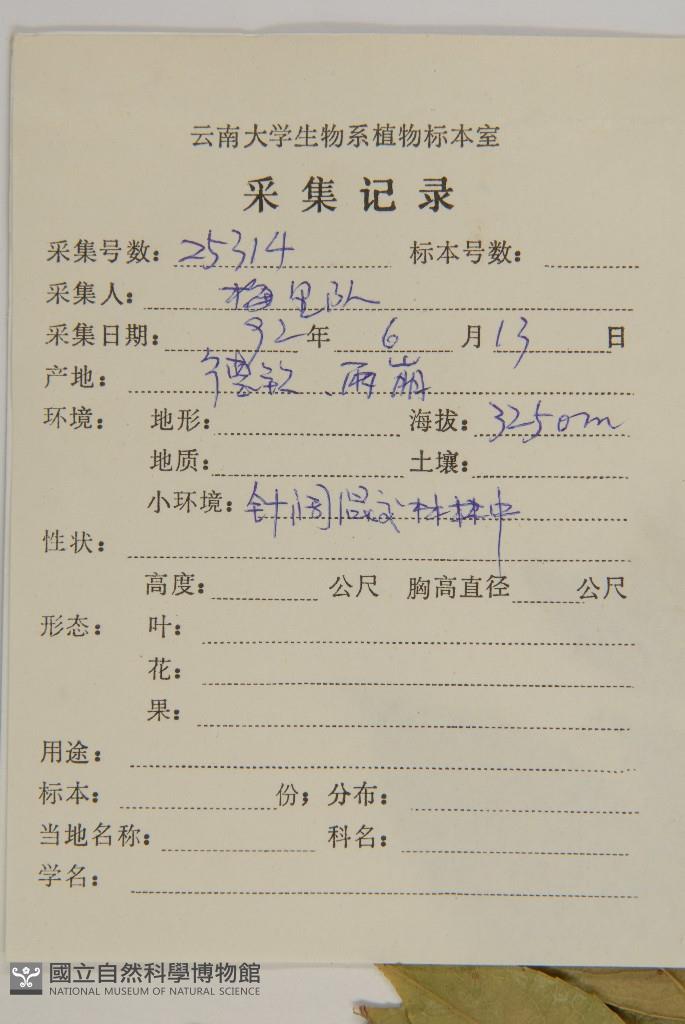 云南大学生物系植物标本室
采集记录
采集号数：25314 标本号数：
采集人：梅里队
采集日期：92年6月13日
产地：德钦、雨崩
环境：地形： 海拔：3250m
地质： 土壤：
小环境：针阔混交林林中
性状：
高度： 公尺 胸高直径 公尺
形态：叶：
花：
果：
用途：
标本： 份；分布：
当地名称： 科名：
学名：
國立自然科學博物館
NATIONAL MUSEUM OF NATURAL SCIENCE